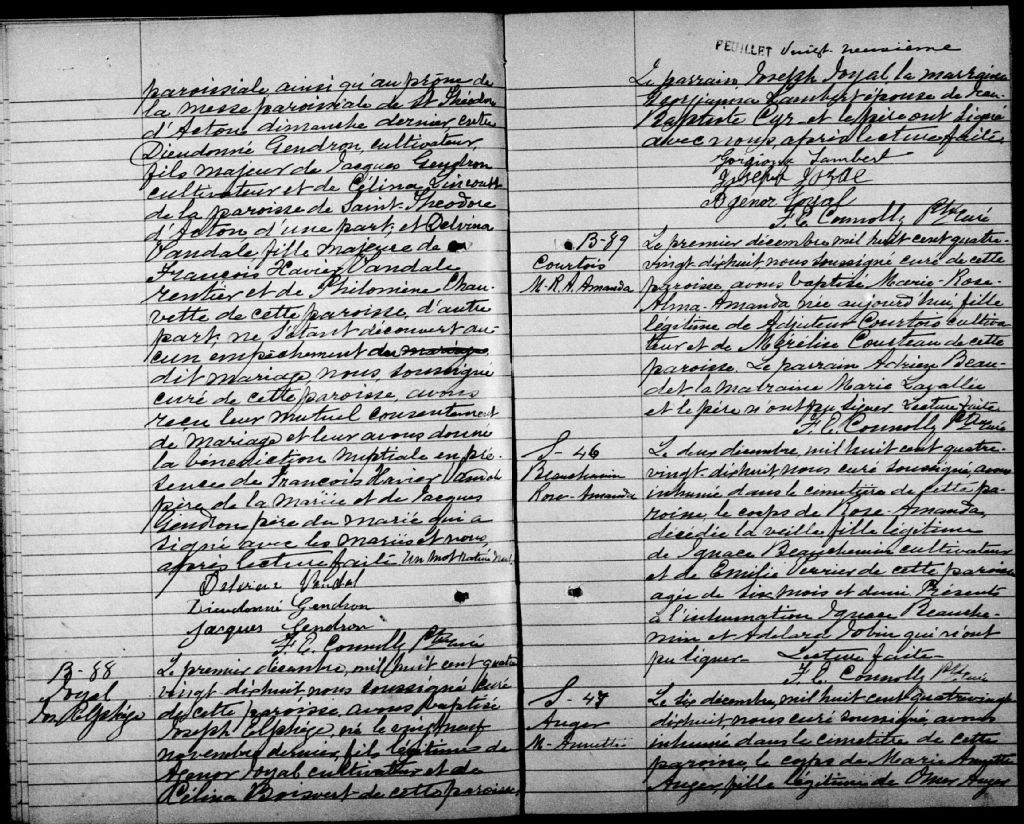 paroissiale ainsi qu'au prône de
la messe paroissiale de St Théodore
d'Acton dimanche dernier entre
Dieudonné Gendron, cultivateur,
fils majeur de Jacques Gendron
cultivateur et de Célina
de la paroisse de Saint-Théodore
d'Acton d'une part, et Delvina
Vandale, fille majeure de
François Xavier Vandale
rentier et de Philomène Chau-
vette de cette paroisse, d'autre
part, ne s'étant découvert au-
cun empêchement du mariage
dit mariage nous soussigné
curé de cette paroisse, avons
reçu leur mutuel consentement
de mariage et leur avons donné
la bénédiction nuptiale en pré-
sence de François Xavier Vandale
père de la mariée et de Jacques
Gendron père du marié qui a
signé avec les mariés et nous,
après lecture faite Un mot nul.
Delvina Vandal
Dieudonné Gendron
Jacques Gendron
F. E. Connolly Ptre Curé
B-88
Joyal
Jos Elphège
Le premier décembre, mil huit cent quatre
vingt dixhuit nous soussigné curé
de cette paroisse, avons baptisé
Joseph Elphège, né le vingt neuf
novembre dernier, fils légitime de
Agenor Joyal cultivateur et de
Célina Boisvert de cette paroisse.
FEUILLET vingt-neuvième
Le parrain Joseph Joyal la marraine
Georgianna Lambert épouse de Jean
Baptiste Cyr et le père ont signé
avec nous, après lecture faite.
Gorgiona Lambert
Joseph Joyal
Agenor Joyal
F. E. Connolly Ptre Curé
B-89
Courtois
M. R. A. Amanda
Le premier décembre, mil huit cent quatre-
vingt-dixhuit nous soussigné curé de cette
paroisse avons baptisé Marie-Rose-
Alma-Amanda née aujourd'hui fille
légitime de Adjuteur Courtois cultiva
teur et de Mérélise Courteau de cette
paroisse. Le parrain Adrien Beau-
det la marraine Marie Lavallée
et le père n'ont pu signer. Lecture faite
F. E. Connolly Ptre Curé
S-46
Beauchemin
Rose-Amanda
Le deux décembre, mil huit cent quatre-
vingt-dixhuit, nous curé soussigné avons
inhumé dans le cimetière de cette pa-
roisse le corps de Rose-Amanda,
décédée la veille fille légitime
de Ignace Beauchemin cultivateur
et de Emilie Verrier de cette paroisse
agée de six mois et demi. Présents
à l'inhumation Ignace Beauche-
min et Adélard Jobin qui n'ont
pu signer. Lecture faite
F. E. Connolly Ptre Curé
S-47
Auger
M-Annette
Le six décembre, mil huit cent quatrevingt
dixhuit, nous curé soussigné avons
inhumé dans le cimetière de cette
paroisse, le corps de Marie Annette
Auger, fille légitime de Omer Auger